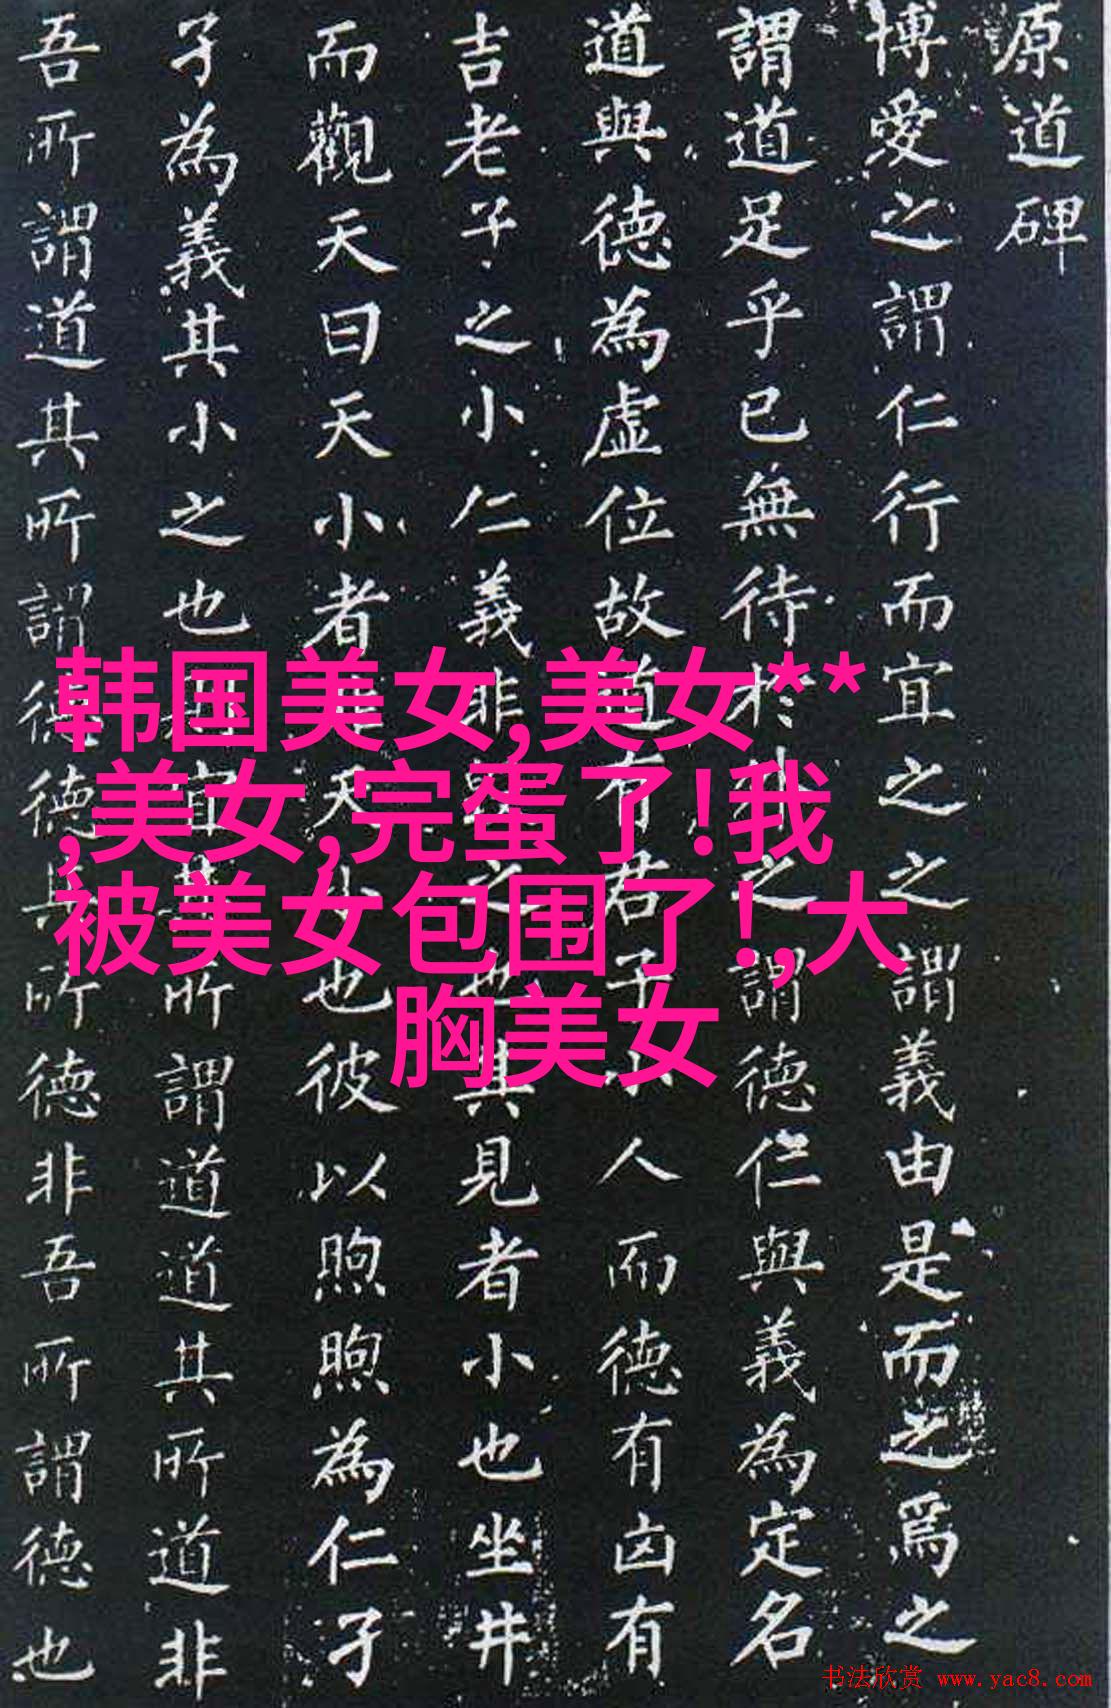 原道碑
博愛之謂仁行而宜之之謂義由是而之焉之
謂道足乎已無待於外之謂德仁與義為定名
道與德為虛位故道有君子小人而德有凶有
吉老子之小仁義非毀之也其見者小也坐井
而觀天曰天小者非天小也彼以煦煦為仁孑
孑為義其小之也則宜其所謂道道其所道非
吾所謂道其所謂德德其所德非吾所謂德也
韩国美女,美女**
,美女,完蛋了!我
被美女包围了!,大
胸美女
书法欣赏 www.yac8.com